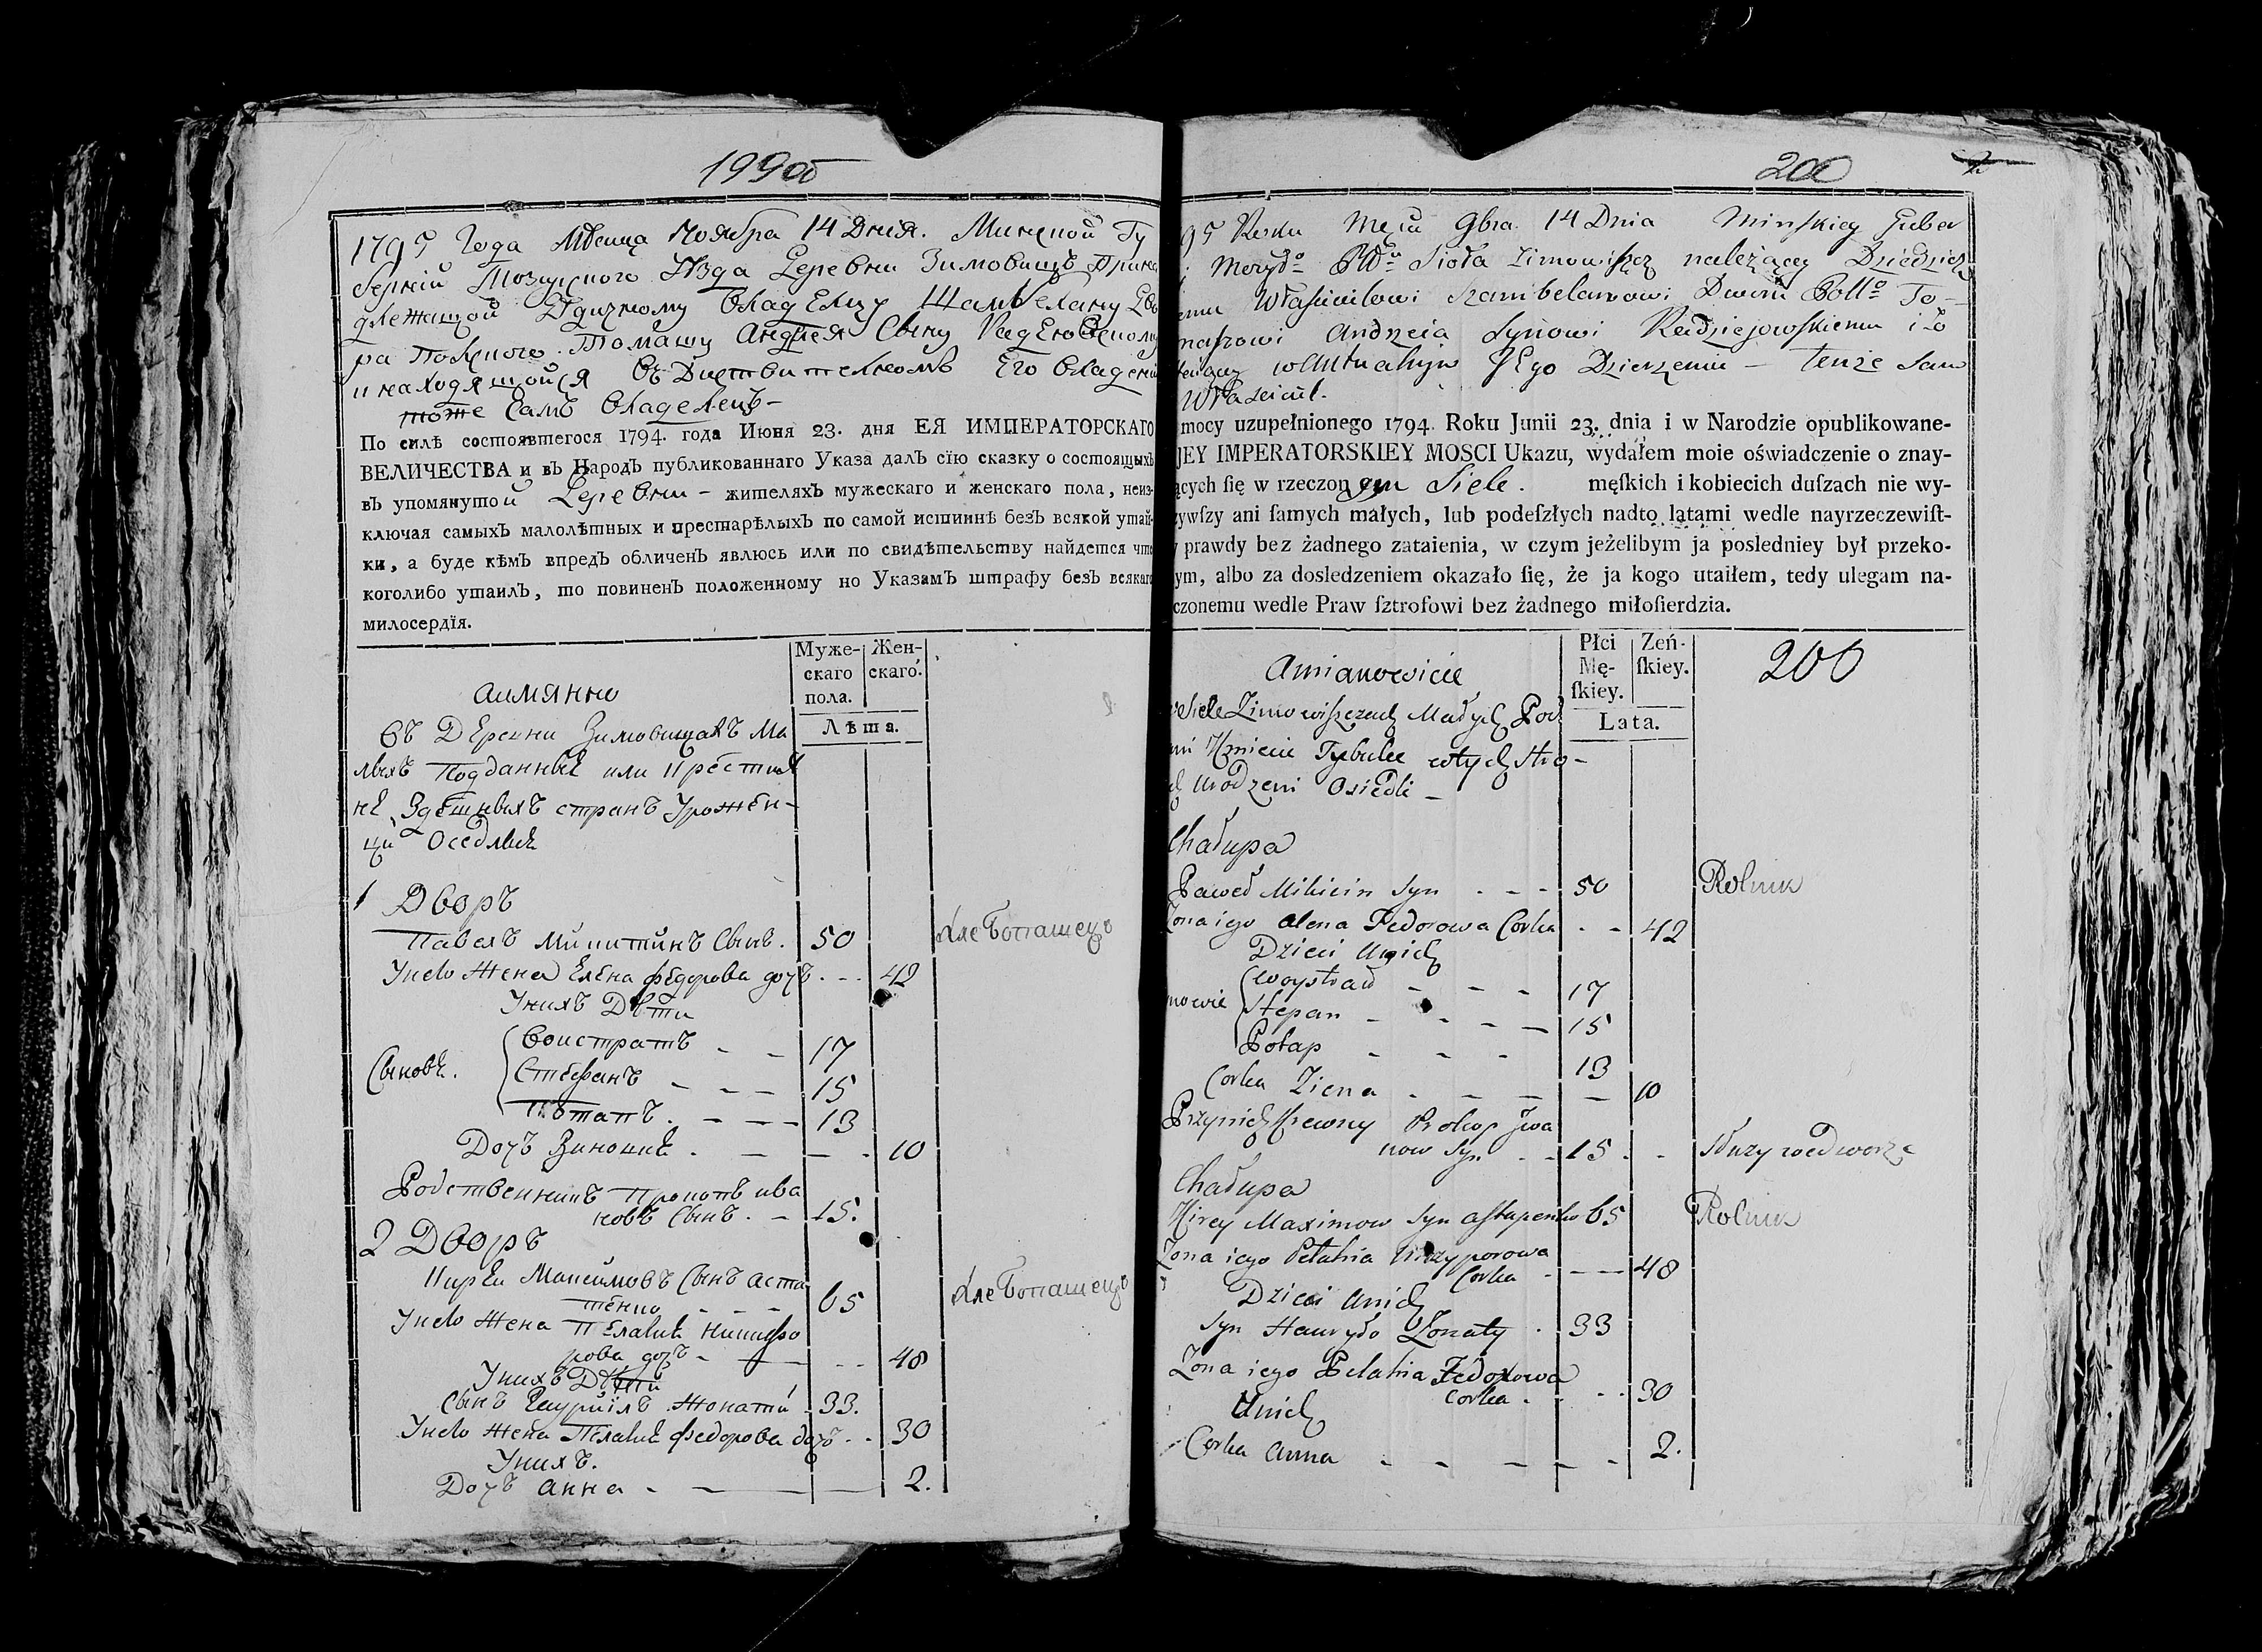 199об
1795 Года Мѣсяца Ноября 14 Дня. Минской Гу
берніи Мозырского Уѣзда Деревни Зимовищъ Прина
длежащой Дѣдичному Владелцу Шамбелану Дво
ра Полского Томашу Андрея Сыну
и находящойся въ Дѣствителномъ Его владеніи
тоже Самъ Владелецъ-
По силѣ состоявшегося 1794. года Июня 23. дня ЕЯ ИМПЕРАТОРСКАГО
ВЕЛИЧЕСТВА и въ Народъ публикованнаго Указа далъ сїю сказку о состоящихъ
въ упомянутой Деревни - жителяхъ мужескаго и женскаго пола, неиз-
ключая самыхъ малолѣтныхъ и престарѣлыхъ по самой истиннѣ безъ всякой утай-
ки, а буде кѣмъ впредъ обличенъ явлюсь или по свидѣтельству найдется что
коголибо утаилъ, то повиненъ положенному по Указамъ штрафу безъ всякаго
милосердїя.
Муже-
скаго
пола.
Жен-
скаго.
Лѣта.
аимянно
въ Деревни Зимовищахъ Ма
лыхъ Подданные или Крестия
не Здешныхъ странъ Урожен-
цы Оседлые
1 Дворъ
Павелъ Микитинъ Сынъ. 50 Хлебопашецъ
У него Жена Елена Федорова дочъ . - - 42
У нихъ Дѣти
Сыновя.
Воистратъ - - 17
Стефанъ - - - 15
Потапъ . - - - 13
Дочъ Зиновия . - - . 10
Родственникъ Прокопъ ива
новъ Сынъ . - 15.
2 Дворъ
Кирей Максимовъ Сынъ аста
пенко - - - 65 Хлебопашецъ
У него Жена Пелагия Никифо
рова дочъ - - - - 48
У нихъ Дѣти
Сынъ Гаурыилъ Жонатый 33.
У него Жена Пелагия Федорова дочъ . . 30
У нихъ.
Дочъ анна - - - - 2.
200
95 Roku Mcia 9bra 14 Dnia Minskiey Guber
Mozyrgo Pttu Sioła Zimowiszcz należący Dziedzicz
emu Właścicielowi Szambelanowi Dworu Pollgo To-
maszowi Andrzeia Synowi Radziejowskiemu i zo
w Aktualnym Jego Dzierzeniu - tenże Sam
Właściciel.
mocy uzupełnionego 1794. Roku Junii 23. dnia i w Narodzie opublikowane-
JEY IMPERATORSKIEY MOSCI Ukazu, wydałem moie oświadczenie o znay-
ących ſię w rzeczonym Siele. męſkich i kobiecich duſzach nie wy-
zywſzy ani ſamych małych, lub podeſzłych nadto latami wedle nayrzeczewiſt-
y prawdy bez żadnego zataienia, w czym jeżelibym ja posledniey był przeko-
ym, albo za dosledzeniem okazało ſię, że ja kogo utaiłem, tedy ulegam na-
czonemu wedle Praw ſztrofowi bez żadnego miłoſierdzia.
Płci
Mę-
ſkiey.
Zeń-
ſkiey.
200
Lata.
Amianowicie
w Siele Zimowiszczach Małych Pod
ni Kmiecie Tybulce w tych stro-
ch urodzeni Osiedli -
Chałupa
Paweł Mikicin Syn . - - 50 Rolnik
Żona iego Alena Fedorowa Corka . - 42
Dzieci u nich
nowie
Woystrad - - - 17
Stepan - - - - 15
Potap - - - 13
Corka Ziena . - - - 10
Przy nich Krewny Prokop Iwa
now Syn . - 15 . - Służy we dworze
Chałupa
Kirey Maximow Syn Astapenko 65 Rolnik
Żona iego Pelahia Niczyporowa
Corka . - - - 48
Dzieci u nich
Syn Hauryło Żonaty . 33
Żona iego Pelahia Fedorowa
Corka . - . . 30
U nich
Corka Anna - - - - . 2.